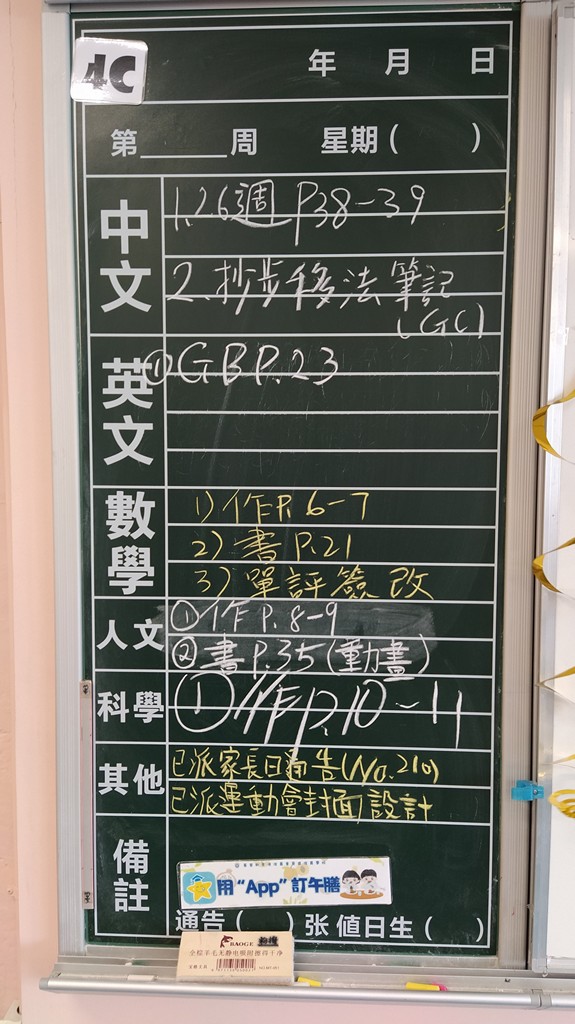 4C
年 月 日
第 周 星期( )
中文
1. 26週 P38-39
2. 抄步移法筆記
(GC)
英文
① GB P.23
數學
1) 作P. 6-7
2) 書 P.21
3) 單評簽改
人文
① 作 P. 8-9
② 書 P.35 (動畫)
科學
① 作 P.10-11
其他
已派家長日通告(No.210)
已派運動會封面設計
備註
用“App”訂午膳
通告( )张 值日生( )
BAOGE
全棕羊毛无静电吸附擦得干净